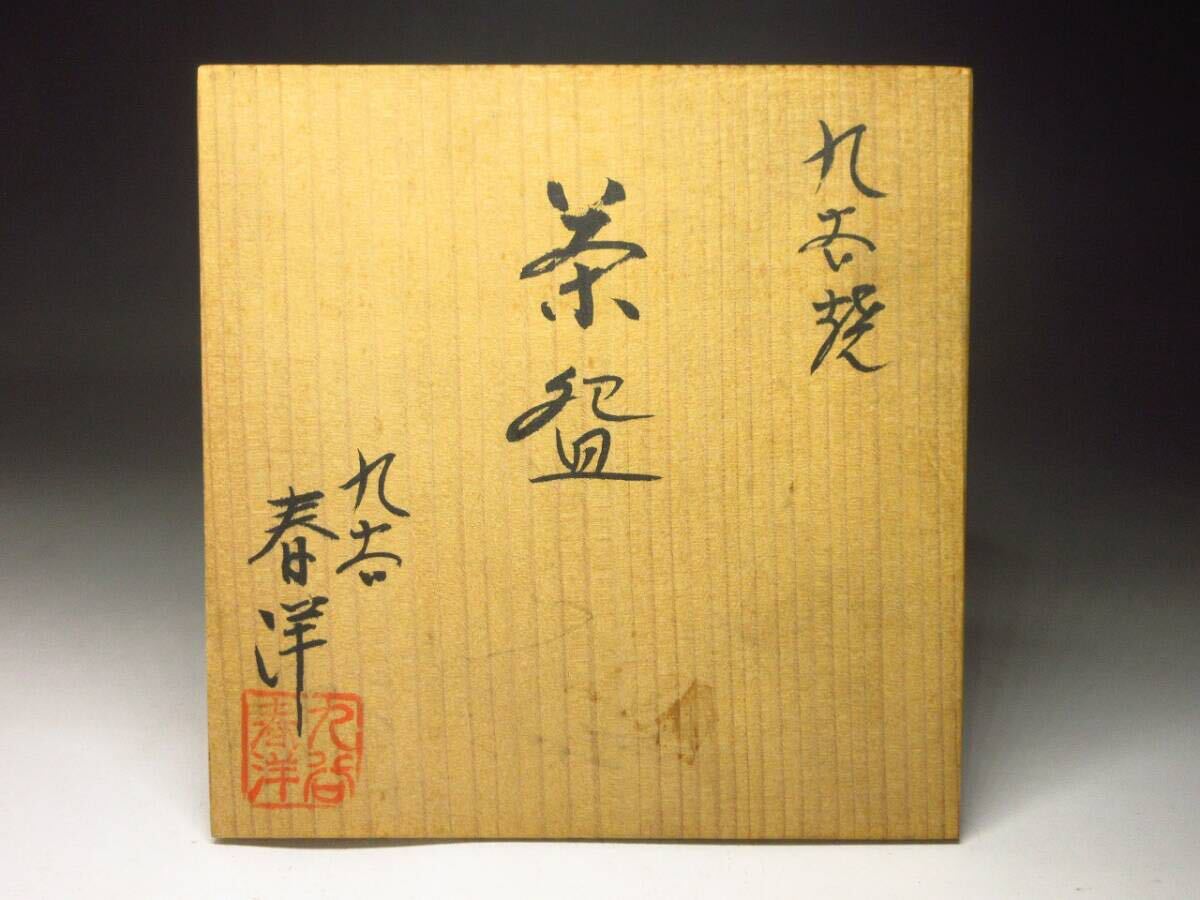 九谷焼
茶盌
九谷
春洋
九谷
春洋